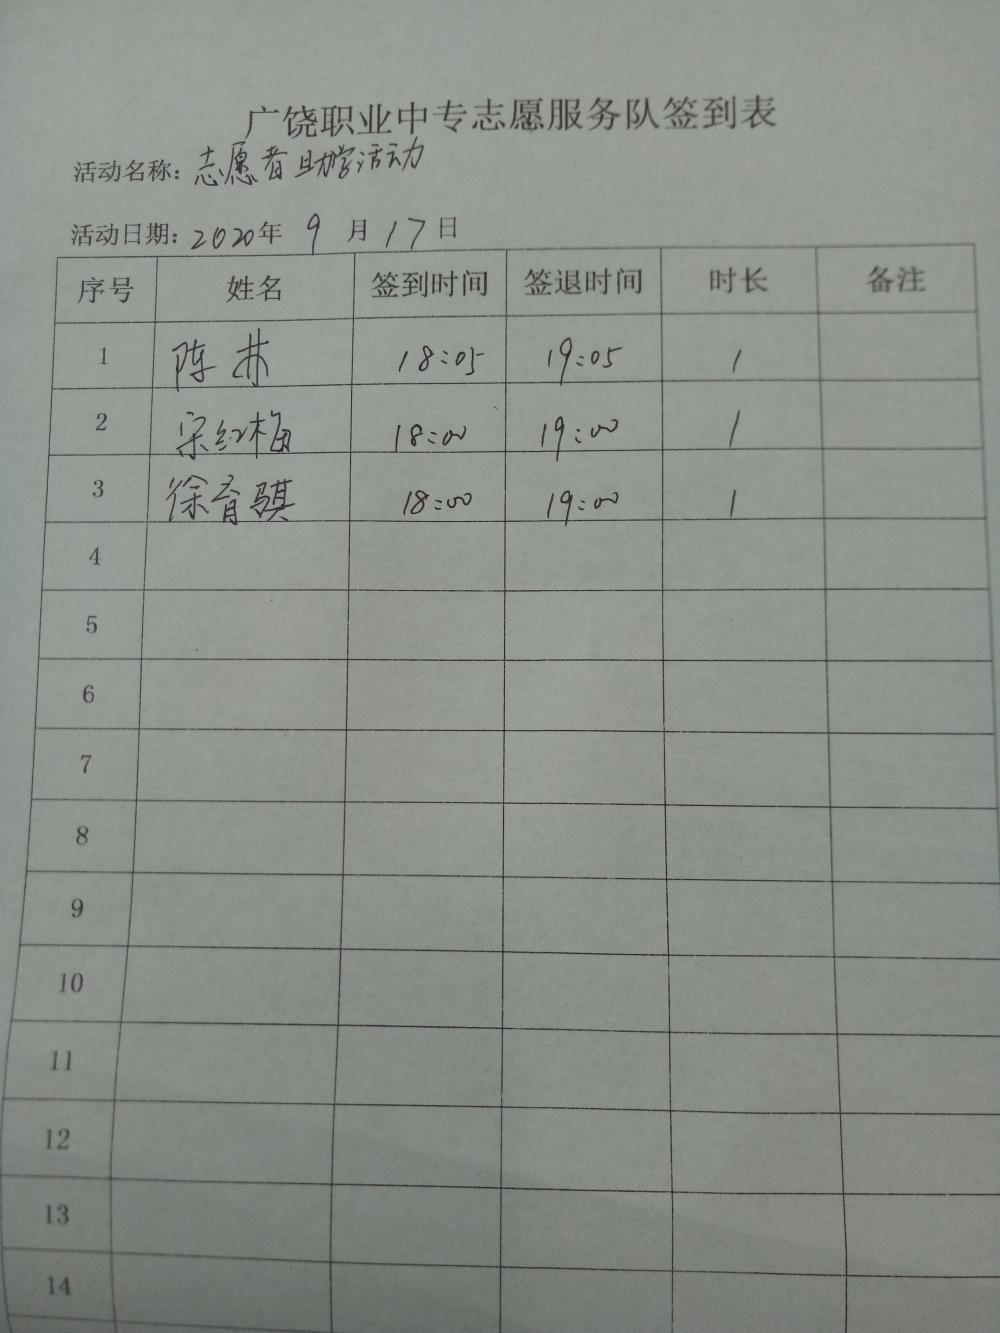 广饶职业中专志愿服务队签到表
活动名称：志愿者助学活动
活动日期：2020年 9 月 17 日
序号 姓名 签到时间 签退时间 时长 备注
1 陈 18:05 19:05 1
2 宋红梅 18:00 19:00 1
3 徐育骐 18:00 19:00 1
4
5
6
7
8
9
10
11
12
13
14